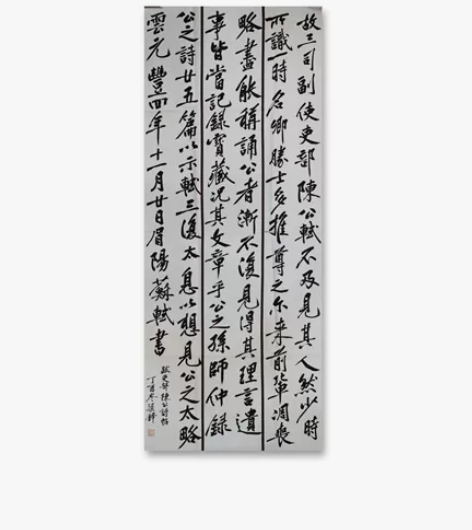 故三司副使吏部陳公軾不及見其人然少時
所識一時名卿勝士多推尊之尔来前輩凋喪
略盡能稱誦公者漸不復見得其理言遺
事皆當記録寳藏况其文章乎公之孫師仲録
公之詩廿五篇以示軾三復太息以想見公之太略
雲元豐四年十一月廿日眉陽蘇軾書
跋吏部陳公詩帖
丁酉冬